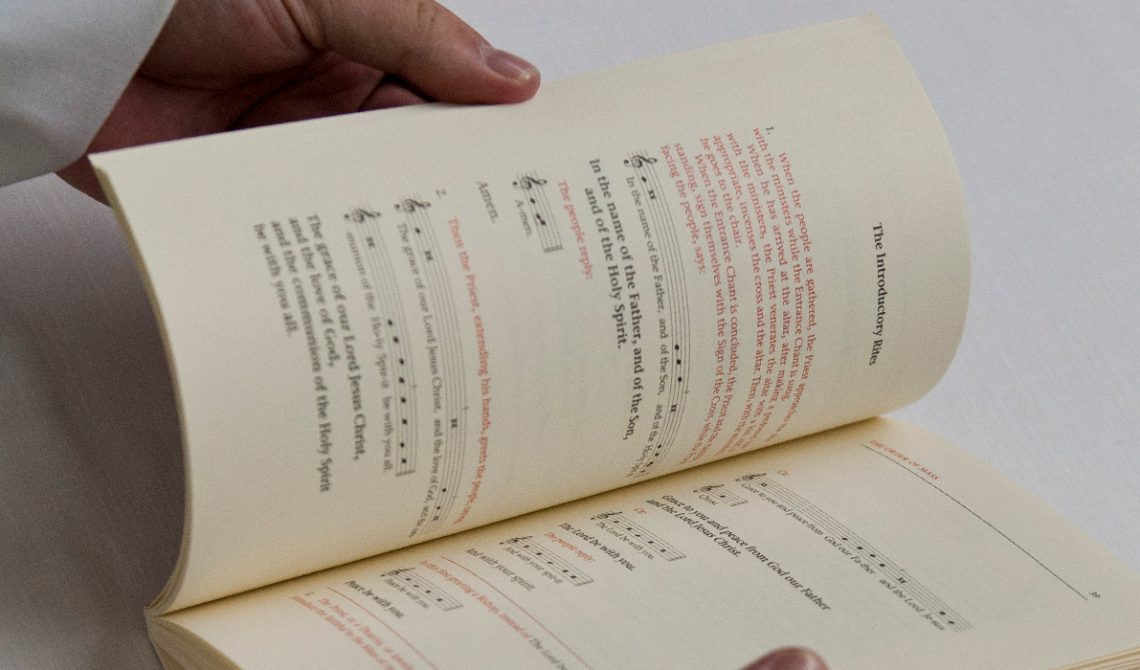 The Introductory Rites
1. When the people are gathered, the Priest approaches the
with the ministers while the Entrance Chant is sung.
When he has arrived at the altar, after making a profound
with the ministers, the Priest venerates the altar with a kiss
appropriate, incenses the cross and the altar. Then, with the
he goes to the chair.
When the Entrance Chant is concluded, the Priest and the
standing, sign themselves with the Sign of the Cross, while the
facing the people, says:
In the name of the Father, and of the Son, and of the Ho-ly
In the name of the Father, and of the Son,
and of the Holy Spirit.
The people reply:
A-men.
Amen.
2. Then the Priest, extending his hands, greets the people,
The grace of our Lord Jesus Christ, and the love of God, and the
munion of the Ho-ly Spir-it be with you all.
The grace of our Lord Jesus Christ,
and the love of God,
and the communion of the Holy Spirit
be with you all.
THE ORDER OF MASS
Or:
Grace to you and peace from God our Fa-ther and the Lord Jesus
Christ.
Grace to you and peace from God our Father
and the Lord Jesus Christ.
Or:
The Lord be with you.
The Lord be with you.
The people reply:
And with your spir-it.
And with your spirit.
In this first greeting a Bishop, instead of The Lord be
Peace be with you.
Peace be with you.
3. The Priest, or a Deacon, or another